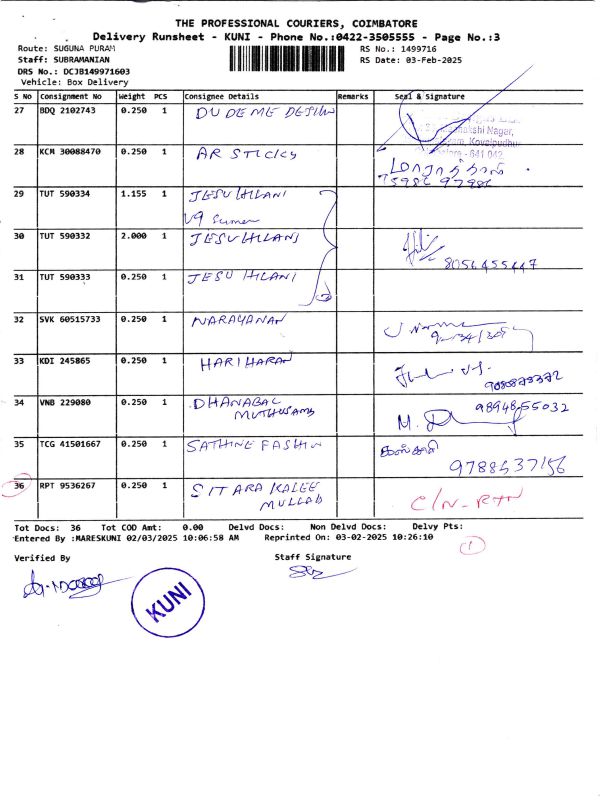 THE PROFESSIONAL COURIERS, COIMBATORE
Delivery Runsheet - KUNI - Phone No.:0422-3505555 - Page No.:3
Route: SUGUNA PURAM RS No.: 1499716
Staff: SUBRAMANIAN RS Date: 03-Feb-2025
DRS No.: DCJB149971603
Vehicle: Box Delivery
S No Consignment No Weight PCS Consignee Details Remarks Seal & Signature
27 BDQ 2102743 0.250 1 DUDEME DESIGN
Nagar,
641 042
28 KCM 30088470 0.250 1 AR STICKS
75986 97986
29 TUT 590334 1.155 1 JESU HILANI
30 TUT 590332 2.000 1 JESU HILANI 8056455447
31 TUT 590333 0.250 1 JESU HILANI
32 SVK 60515733 0.250 1 NARAYANAN
33 KDI 245865 0.250 1 HARIHARAN
34 VNB 229080 0.250 1 DHANABAL 9894855032
MUTHUSAMY
35 TCG 41501667 0.250 1 SATHINE FASHIN
9788537156
36 RPT 9536267 0.250 1 SITARA KALEE C/N-RTN
MULLAD
Tot Docs: 36 Tot COD Amt: 0.00 Delvd Docs: Non Delvd Docs: Delvy Pts:
Entered By :MARESKUNI 02/03/2025 10:06:58 AM Reprinted On: 03-02-2025 10:26:10
1
Verified By Staff Signature
KUNI